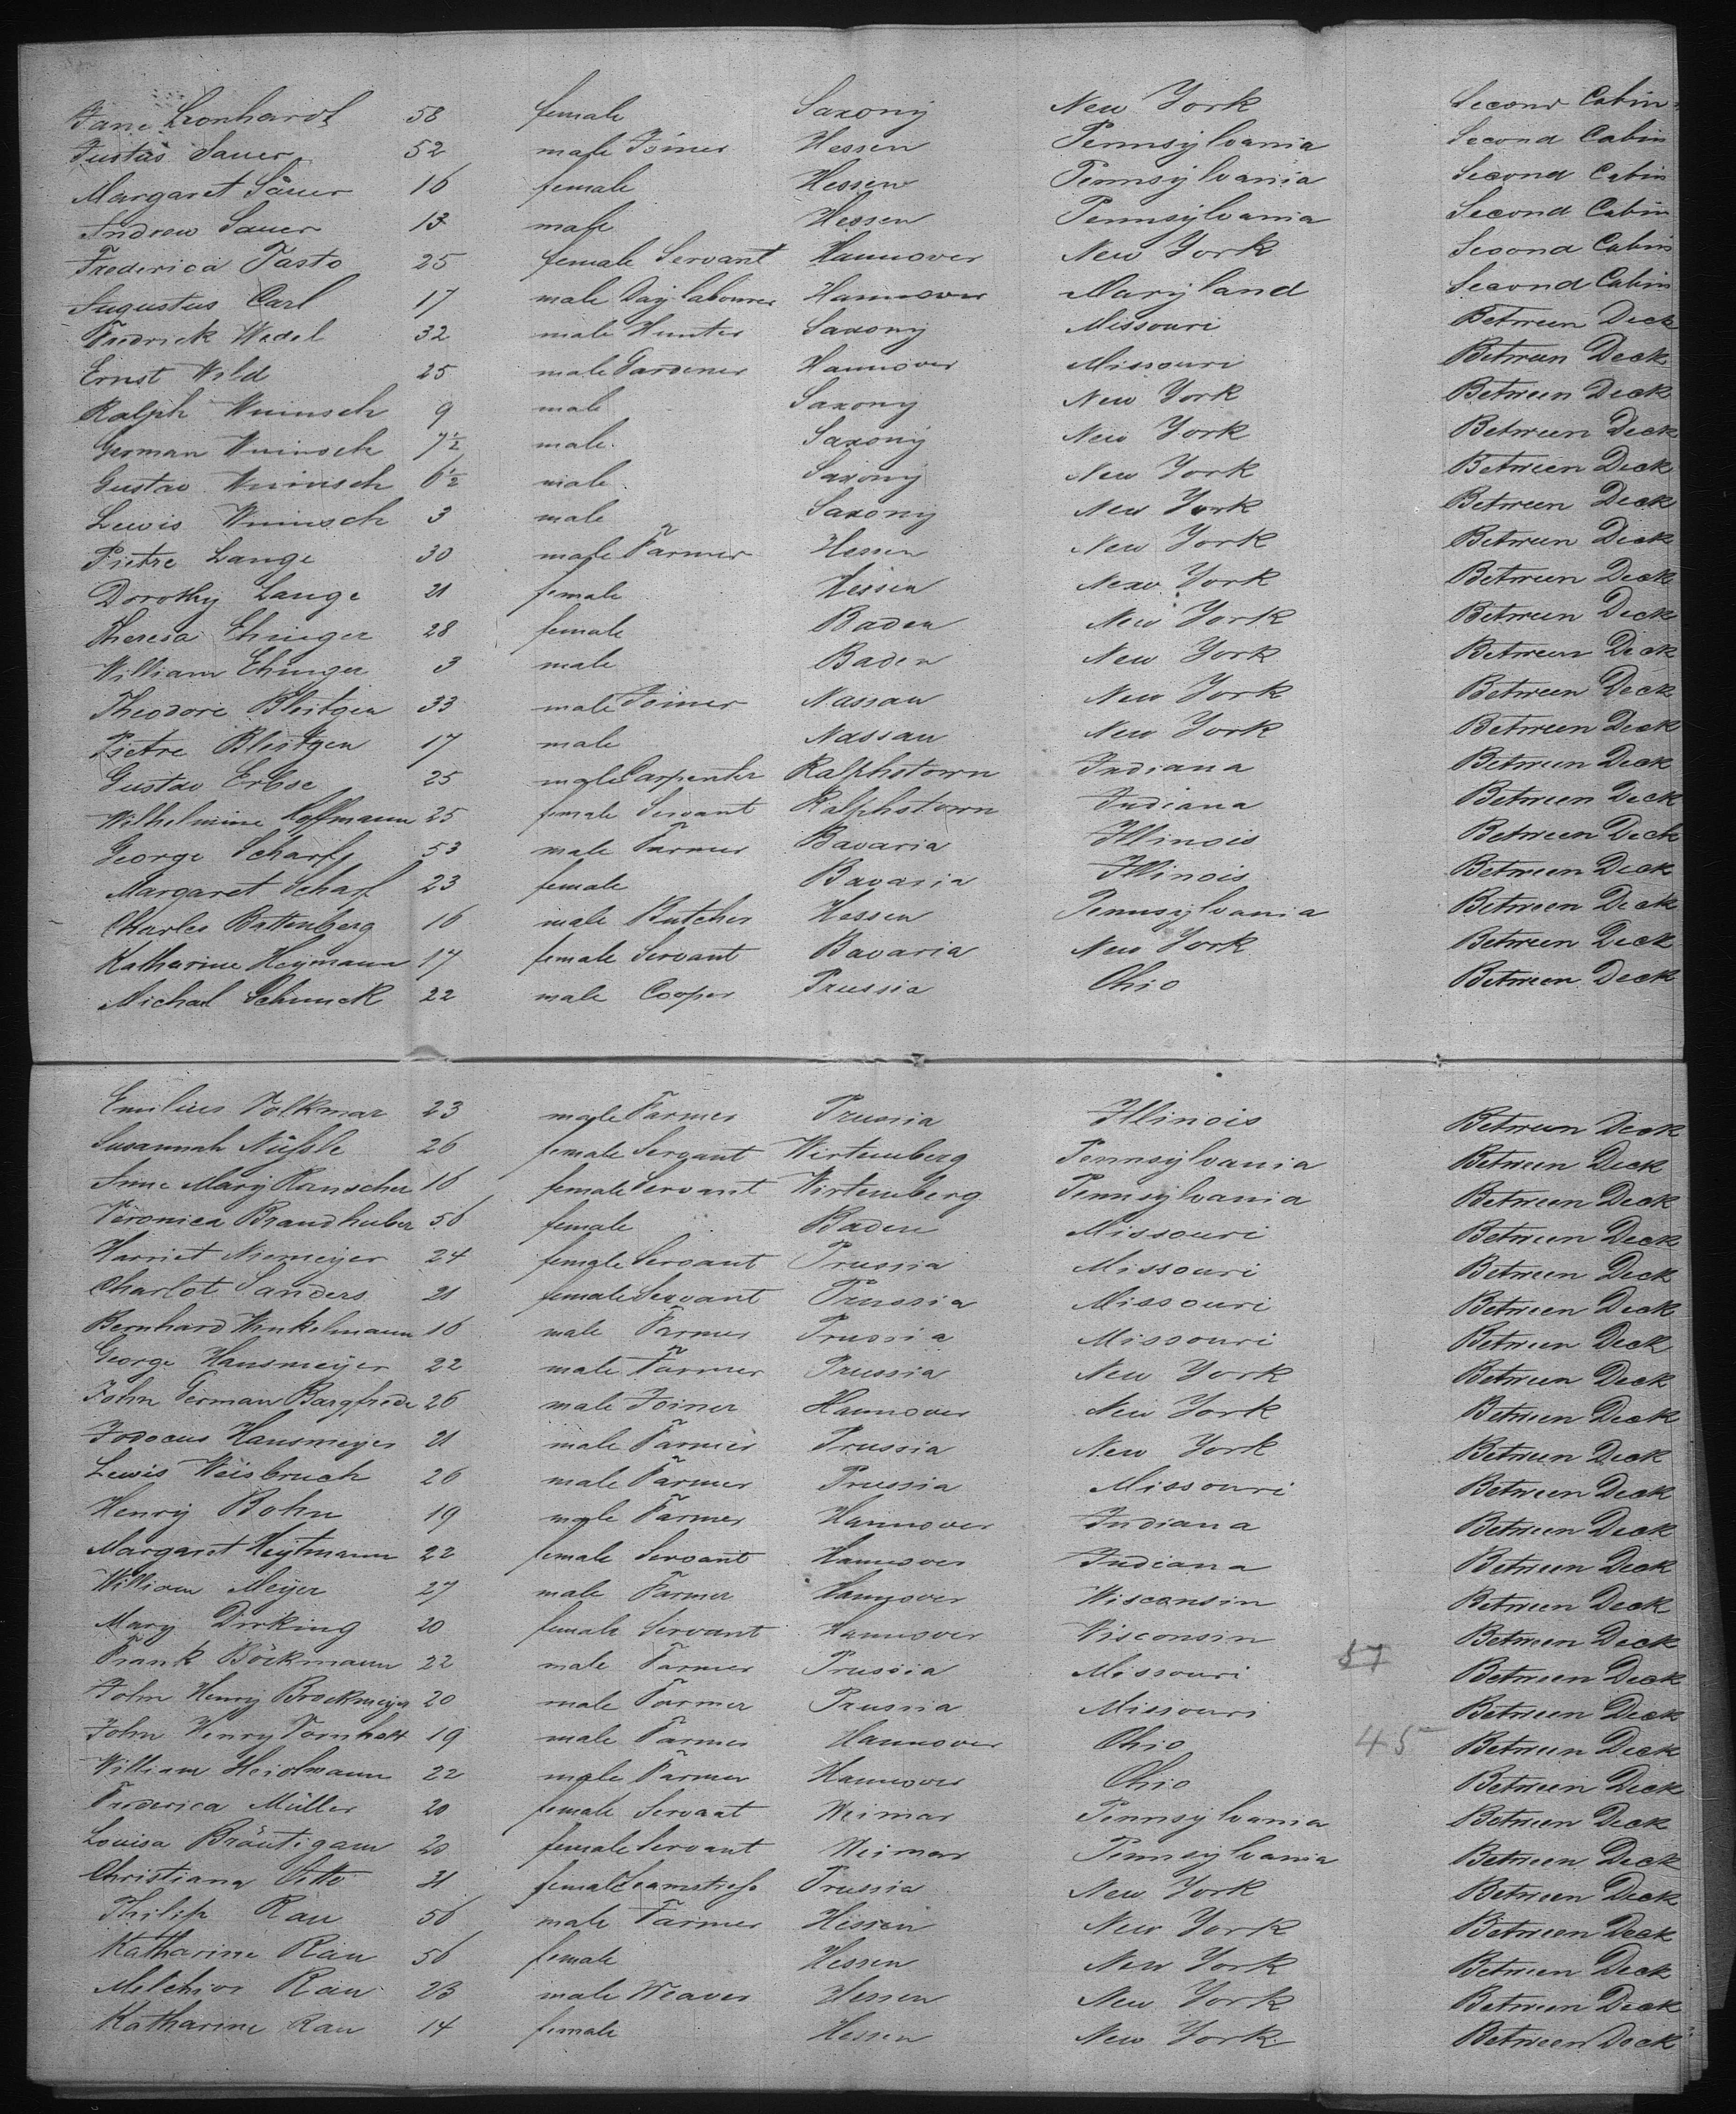 Jane Leonhardt 58 female Saxony New York Second Cabin
Justus Sauer 52 male Joiner Hessen Pennsylvania Second Cabin
Margaret Sauer 16 female Hessen Pennsylvania Second Cabin
Andrew Sauer 13 male Hessen Pennsylvania Second Cabin
Frederica Tasto 25 female Servant Hannover New York Second Cabin
Augustus Carl 17 male Day labourer Hannover Maryland Second Cabin
Fredrick Wedel 32 male Hunter Saxony Missouri Between Deck
Ernst Wild 25 male Gardener Hannover Missouri Between Deck
Ralph Wuinsch 9 male Saxony New York Between Deck
German Wuinsch 7½ male Saxony New York Between Deck
Gustav Wuinsch 6½ male Saxony New York Between Deck
Lewis Wuinsch 3 male Saxony New York Between Deck
Pietre Lange 30 male Farmer Hessen New York Between Deck
Dorothy Lange 21 female Hessen New York Between Deck
Theresa Ehinger 28 female Baden New York Between Deck
William Ehinger 3 male Baden New York Between Deck
Theodore Bleitgen 33 male Joiner Nassau New York Between Deck
Pietre Bleitgen 17 male Nassau New York Between Deck
Gustav Erbse 25 male Carpenter Ralphstown Indiana Between Deck
Wilhelmine Hoffmann 25 female Servant Ralphstown Indiana Between Deck
George Scharf 53 male Farmer Bavaria Illinois Between Deck
Margaret Scharf 23 female Bavaria Illinois Between Deck
Charles Battenberg 16 male Butcher Hessen Pennsylvania Between Deck
Katharine Heymann 17 female Servant Bavaria New York Between Deck
Michael Schunck 22 male Cooper Prussia Ohio Between Deck
Emilius Volkmar 23 male Farmer Prussia Illinois Between Deck
Susannah Nüssle 26 female Servant Wirtemberg Pennsylvania Between Deck
Anne Mary Rauscher 16 female Servant Wirtemberg Pennsylvania Between Deck
Veronica Brandhuber 56 female Baden Missouri Between Deck
Harriet Niemeyer 24 female Servant Prussia Missouri Between Deck
Charlot Sanders 21 female Servant Prussia Missouri Between Deck
Bernhard Winkelmann 16 male Farmer Prussia Missouri Between Deck
George Hausmeyer 22 male Farmer Prussia New York Between Deck
John German Bargfrede 26 male Joiner Hannover New York Between Deck
Jodocus Hausmeyer 21 male Farmer Prussia New York Between Deck
Lewis Weisbruch 26 male Farmer Prussia Missouri Between Deck
Henry Bohn 19 male Farmer Hannover Indiana Between Deck
Margaret Heytmann 22 female Servant Hannover Indiana Between Deck
William Meyer 27 male Farmer Hannover Wisconsin Between Deck
Mary Dirking 20 female Servant Hannover Wisconsin Between Deck
Frank Böckmann 22 male Farmer Prussia Missouri 57 Between Deck
John Henry Brockmeyer 20 male Farmer Prussia Missouri Between Deck
John Henry Vornholt 19 male Farmer Hannover Ohio 45 Between Deck
William Heidmann 22 male Farmer Hannover Ohio Between Deck
Frederica Müller 20 female Servant Weimar Pennsylvania Between Deck
Louisa Bräutigam 20 female Servant Weimar Pennsylvania Between Deck
Christiana Otto 21 female Seamstress Prussia New York Between Deck
Philip Rau 56 male Farmer Hessen New York Between Deck
Katharine Rau 56 female Hessen New York Between Deck
Melchior Rau 23 male Weaver Hessen New York Between Deck
Katharine Rau 14 female Hessen New York Between Deck